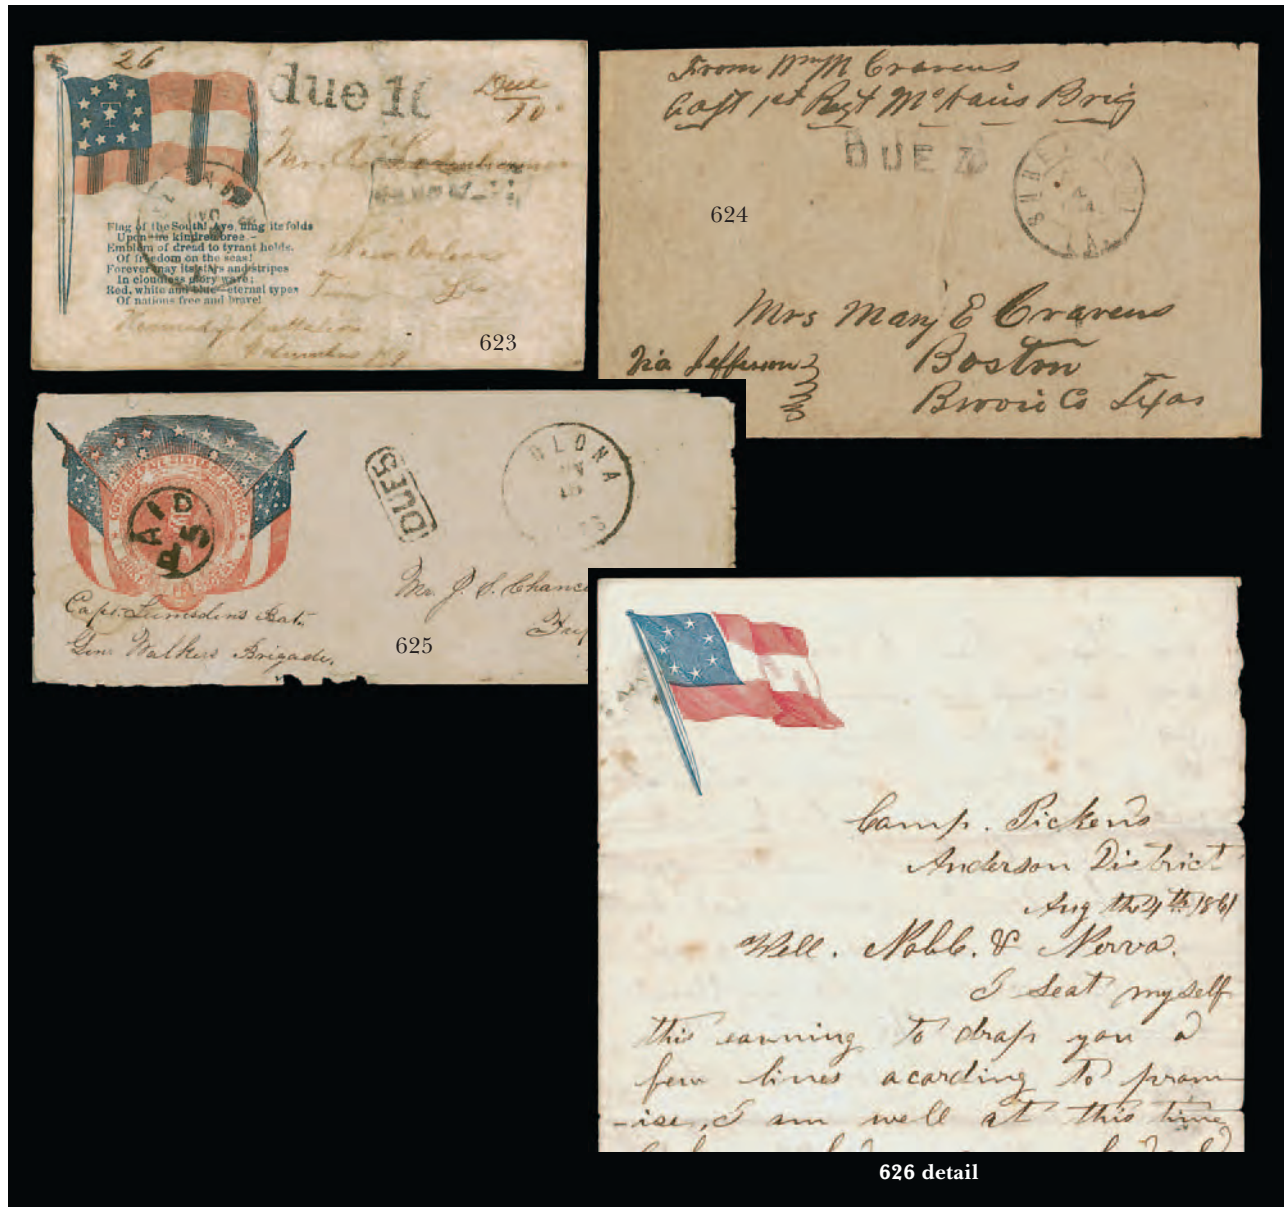 26
due 10
Due
10
Mr.
Flag of the South! Aye, fling its folds
Upon the kindred breeze—
Emblem of dread to tyrant holds.
Of freedom on the seas!
Forever may its stars and stripes
In cloudless glory wave;
Red, white and blue—eternal types
Of nations free and brave!
New Orleans
Battalion
Columbus Ky
623
From Wm M Cravens
Capt 1st Regt McNairs Brig
DUE
SHREVE
LA.
624
Mrs Mary E Cravens
Via Jefferson
Boston
Bowie Co Texas
CONFEDERATE STATES OF AMERICA
PAID
5
DUE 5
OLONA
Mr. J. S. Chance
Capt. Lumsdens Bat.
Genr Walkers Brigade.
625
Camp. Pickens
Anderson District
Aug the 4th 1861
Well. Nabb. & Nerva.
I seat myself
this eavning to drap you a
few lines acarding to pram
-ise, I am well at this time
626 detail